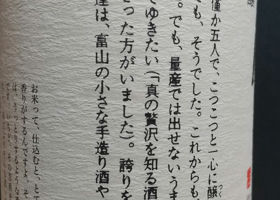 僅か五人で、こつこつと一心に醸
も、そうでした。これからも
。でも、量産では出せないうま
てゆきたい(「真の贅沢を知る酒
った方がいました)。誇りを
は、富山の小さな手造り酒や
お米って、仕込むと、とて
香りがするんですよ。そ